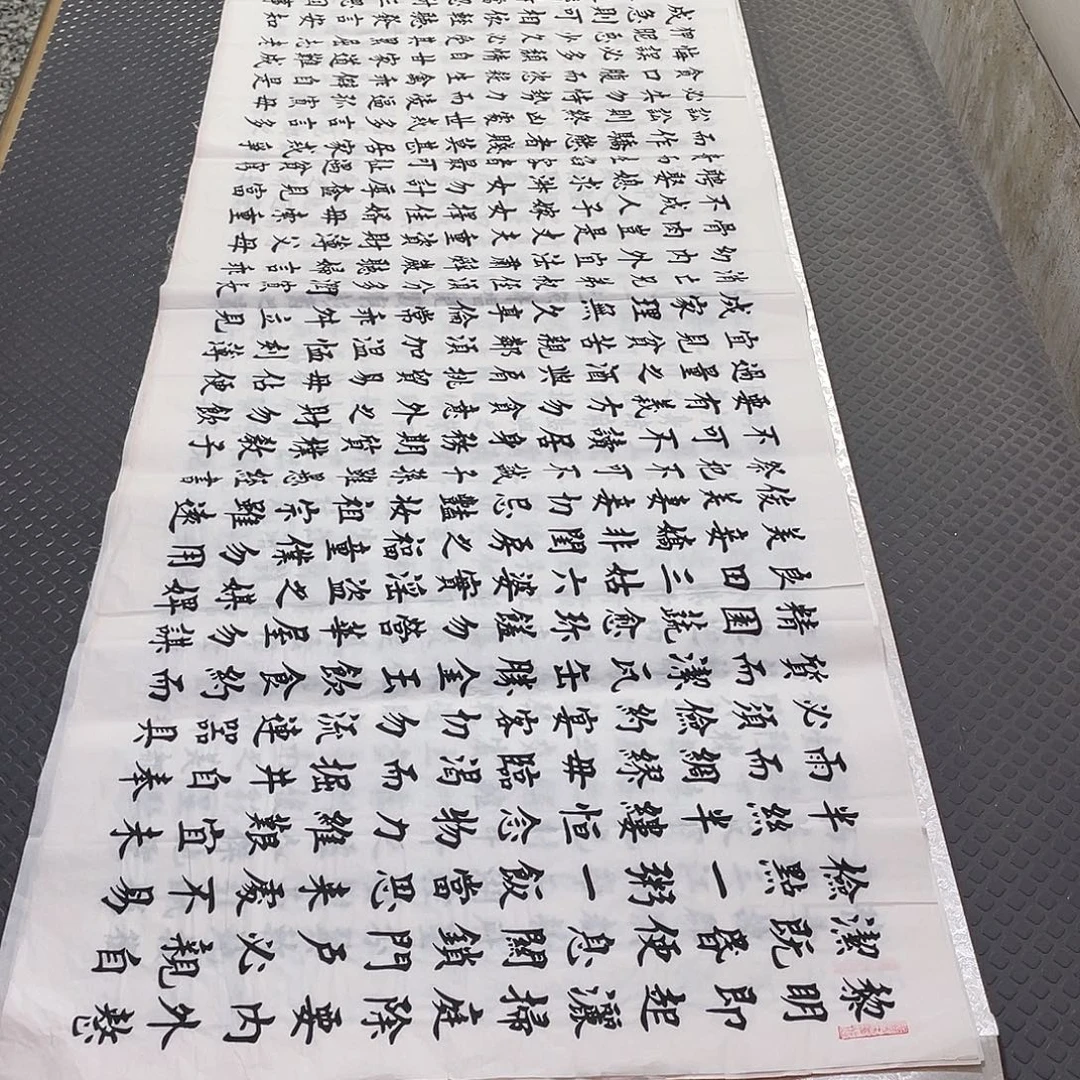 黎明即起灑掃庭除要內外整
潔既昏便息關鎖門戶必親自
檢點一粥一飯當思來處不易
半絲半縷恒念物力維艱宜未
雨而綢繆毋臨渴而掘井自奉
必須儉約宴客切勿流連器具
質而潔瓦缶勝金玉飲食約而
精園蔬愈珍饈勿營華屋勿謀
良田三姑六婆實淫盜之媒婢
美妾嬌非閨房之福童僕勿用
俊美妻妾切忌豔妝祖宗雖遠
祭祀不可不誠子孫雖愚經書
不可不讀居身務期質樸教子
要有義方勿貪意外之財勿飲
過量之酒與肩挑貿易毋佔便
宜見貧苦親鄰須加溫恤刻薄
成家理無久享倫常乖舛立見
消亡兄弟叔侄須分多潤寡長
幼內外宜法肅辭嚴聽婦言乖
骨肉豈是丈夫重資財薄父母
不成人子嫁女擇佳婿毋索重
聘娶媳求淑女勿計厚奩見富
貴而生諂容者最可恥遇貧窮
而作驕態者賤莫甚居家戒爭
訟訟則終凶處世戒多言言多
必失勿恃勢力而凌逼孤寡毋
貪口腹而恣殺生禽乖僻自是
悔誤必多頹惰自甘家道難成
狎昵惡少久必受其累屈志老
成急則可相依輕聽發言安知